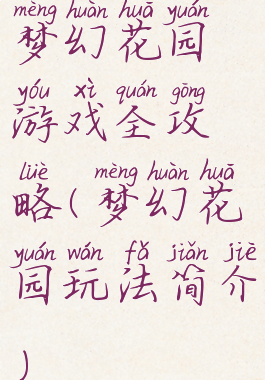 mèng huàn huā yuán
梦幻花园
yóu xì quán gōng
游戏全攻
lüè mèng huàn huā
略(梦幻花
yuán wán fǎ jiǎn jiè
园玩法简介
)